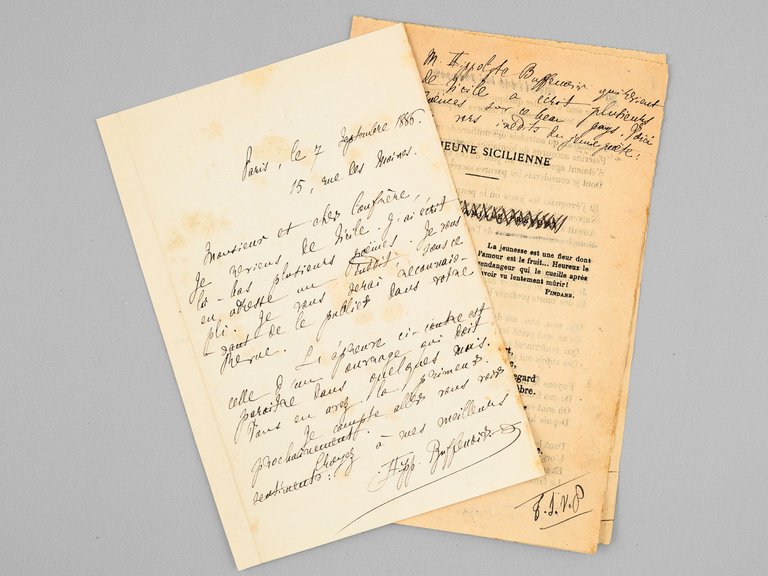 Paris, le 7 Septembre 1886.
15, rue des Moines.
Monsieur et cher Confrère,
Je reviens de Sicile. J'ai écrit
là-bas plusieurs poèmes. Je vous
en adresse un inédit sous ce
pli. Je vous serai reconnais-
sant de le publier dans votre
Revue.
L'épreuve ci-contre est
celle d'un ouvrage qui doit
paraître dans quelques mois.
Vous en avez la primeur.
Je compte aller vous voir
prochainement.
Croyez à mes meilleurs
sentiments.
Hipp. Buffenoir
M. Hippolyte Buffenoir qui revient
de Sicile a écrit plusieurs
poèmes sur ce beau pays. Voici
vers inédits du jeune poète:
JEUNE SICILIENNE
La jeunesse est une fleur dont
l'amour est le fruit... Heureux le
vendangeur qui le cueille après
avoir vu lentement mûrir!
PINDARE.
T.S.V.P